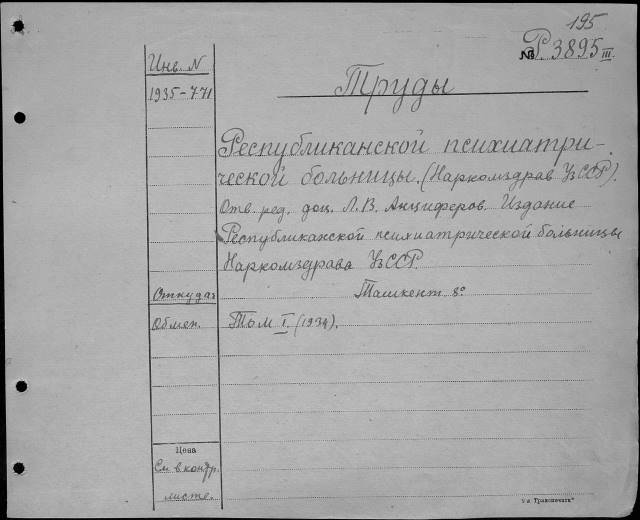 195
№ Р. 3895 III.
Инв. N
1935-771
Труды
Республиканской психиатри-
ческой больницы. (Наркомздрав УзССР).
Отв. ред. доц. Л.В. Анциферов. Издание
Республиканской психиатрической больницы
Наркомздрава УзССР.
Откуда
Ташкент 8°
Обмен.
Том I. (1934).
Цена
См. в контр.
листе.
я тип. „Транспечать“